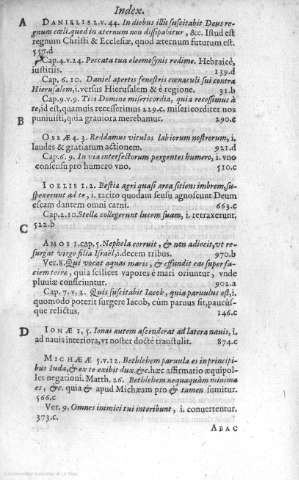 Index.
A DANIELIS 2. v. 44. In diebus illis suscitabit Deus re-
gnum cæli, quod in æternum non dissipabitur, &c. Istud est
regnum Christi & Ecclesiæ, quod æternum futurum est.
557.d
Cap. 4. v. 24. Peccata tua eleemosynis redime. Hebraicè,
iustitiis. 139.d
Cap. 6. 10. Daniel apertis fenestris cœnaculi sui contra
Hierusalem, i. versus Hierusalem & è regione. 31.b
Cap. 9. v. 9. Tibi Domine misericordia, quia recessimus à
te, id est, quamuis recesserimus 229.c. misericorditer nos
B puniuisti, quia grauiora merebamur. 290.c
OSEÆ 4. 3. Reddamus vitulos labiorum nostrorum, i.
laudes & gratiarum actionem. 921.d
Cap. 6. 9. In via interfectorum pergentes humero, i. vno
consensu pro humero vno. 510.c
IOELIS 1. 2. Bestia agri quasi area sitiens imbrem, su-
spexerunt ad te, i. tacito quodam sensu agnoscunt Deum
escam dantem omni carni. 663.d
Cap. 2. 10. Stellæ collegerunt lucem suam, i. retraxerunt.
522.b
C
AMOS 1. cap. 5. Nephela corruit, & non adiiciet, vt re-
surgat virgo filia Israel, i. decem tribus. 970.b
Ver. 8. Qui vocat aquas maris, & effundit eas super fa-
ciem terræ, quia scilicet vapores è mari oriuntur, vnde
pluuiæ consciuntur. 902.a
Cap. 7. v. 2. Quis suscitabit Iacob, quia paruulus est, i.
quomodo poterit surgere Iacob, cum paruus sit, paucús-
que relictus. 146.c
D IONÆ 1, 5. Ionas autem ascenderat ad latera nauis, i.
ad nauis interiora, vt noster doctè transtulit. 874.c
MICHÆÆ 5. v. 12. Bethlehem paruula es in principi-
bus Iuda, & ex te exibit dux, &c. hæc affirmatio æquipol-
let negationi. Matth. 26. Bethlehem nequaquàm minima
es, &c. quia & apud Michæam pro & tamen sumitur.
566.c
Ver. 9. Omnes inimici tui interibunt, i. conuertentur.
373.c.
ABAC